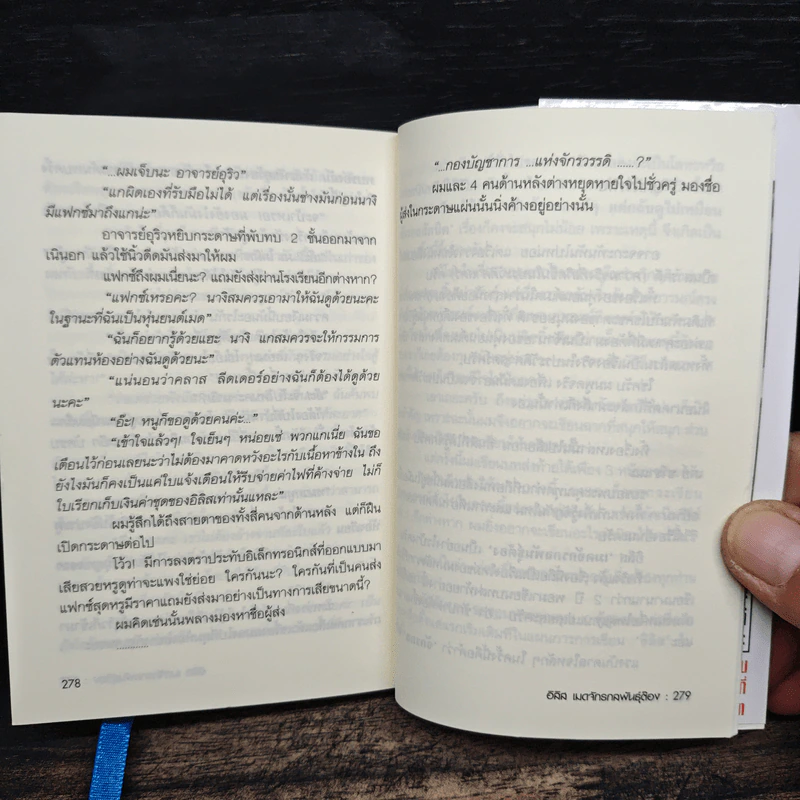 “...ผมเจ็บนะ อาจารย์อุริว”
“แกผิดเองที่รับมือไม่ได้ แต่เรื่องนั้นช่างมันก่อนนางิ
มีแฟกซ์มาถึงแกน่ะ”
อาจารย์อุริวหยิบกระดาษที่พับทบ 2 ชั้นออกมาจาก
เนินอก แล้วใช้นิ้วดีดมันส่งมาให้ผม
แฟกซ์ถึงผมเนี่ยนะ? แถมยังส่งผ่านโรงเรียนอีกต่างหาก?
“แฟกซ์เหรอคะ? นางิสมควรเอามาให้ฉันดูด้วยนะคะ
ในฐานะที่ฉันเป็นหุ่นยนต์เมด”
“ฉันก็อยากรู้ด้วยแฮะ นางิ แกสมควรจะให้กรรมการ
ตัวแทนห้องอย่างฉันดูด้วยนะ”
“แน่นอนว่าคลาส ลีดเดอร์อย่างฉันก็ต้องได้ดูด้วย
นะคะ”
“อ๊ะ! หนูก็ขอดูด้วยคนค่ะ...”
“เข้าใจแล้วๆ! ใจเย็นๆ หน่อยเซ่ พวกแกเนี่ย ฉันขอ
เตือนไว้ก่อนเลยนะว่าไม่ต้องมาคาดหวังอะไรกับเนื้อหาข้างใน ถึง
ยังไงมันก็คงเป็นแค่ใบแจ้งเตือนให้รีบจ่ายค่าไฟที่ค้างจ่าย ไม่ก็
ใบเรียกเก็บเงินค่าชุดของอิลิสเท่านั้นแหละ”
ผมรู้สึกได้ถึงสายตาของทั้งสี่คนจากด้านหลัง แต่ก็ฝืน
เปิดกระดาษต่อไป
โว้ว! มีการลงตราประทับอิเล็กทรอนิกส์ที่ออกแบบมา
เสียสวยหรูดูท่าจะแพงใช่ย่อย ใครกันนะ? ใครกันที่เป็นคนส่ง
แฟกซ์สุดหรูมีราคาแถมยังส่งมาอย่างเป็นทางการเสียขนาดนี้?
ผมคิดเช่นนั้นพลางมองหาชื่อผู้ส่ง
............
278
“...กองบัญชาการ ...แห่งจักรวรรดิ ......?”
ผมและ 4 คนด้านหลังต่างหยุดหายใจไปชั่วครู่ มองชื่อ
ผู้ส่งในกระดาษแผ่นนั้นนิ่งค้างอยู่อย่างนั้น
อิลิส เมดจักรกลพันธุ์ต๊อง : 279